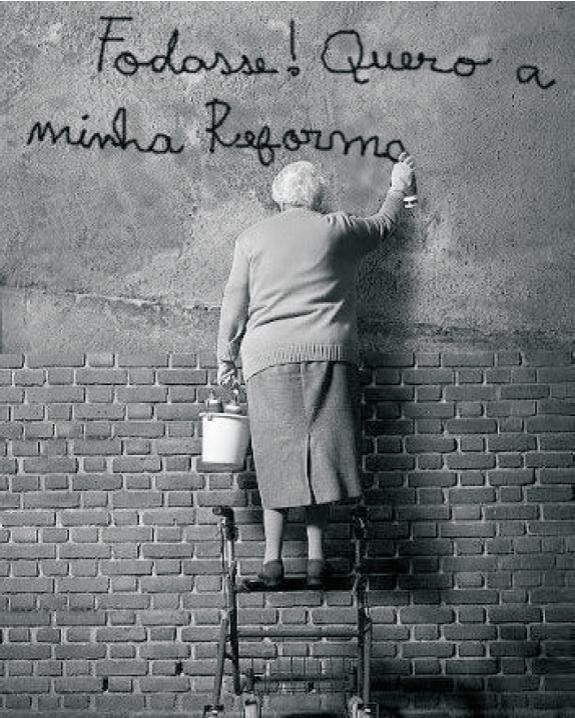 Fodasse! Quero a
minha Reforma